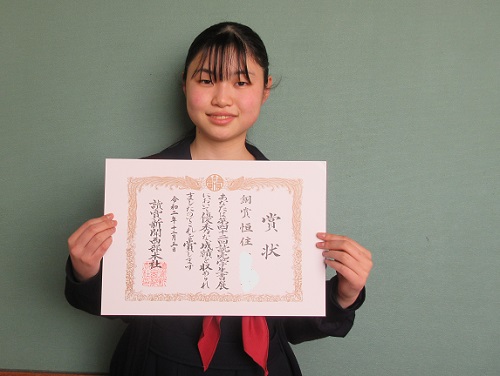 賞状
銅賞 恒住
あなたは第四十二回読売学生書展
において優秀な成績を収められ
ましたのでこれを賞します
令和二年十二月五日
読売新聞西部本社